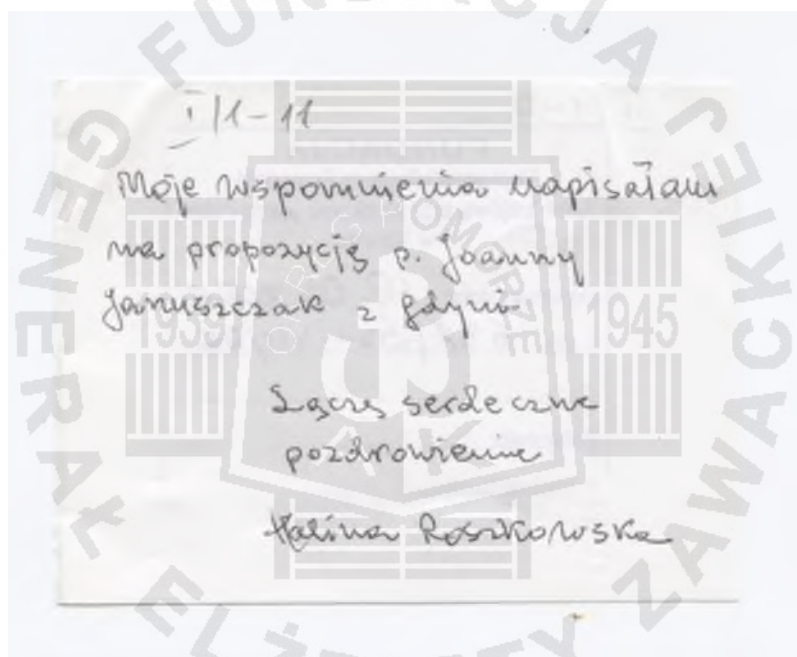 I/1-11
Moje wspomnienia napisałam
na propozycję p. Joanny
Januszczak z Gdyni
Łączę serdeczne
pozdrowienia
Halina Roszkowska
FUNDACJA GENERAŁ ELŻBIETY ZAWACKIEJ
OKRĘG POMORZE
1939
1945
AK